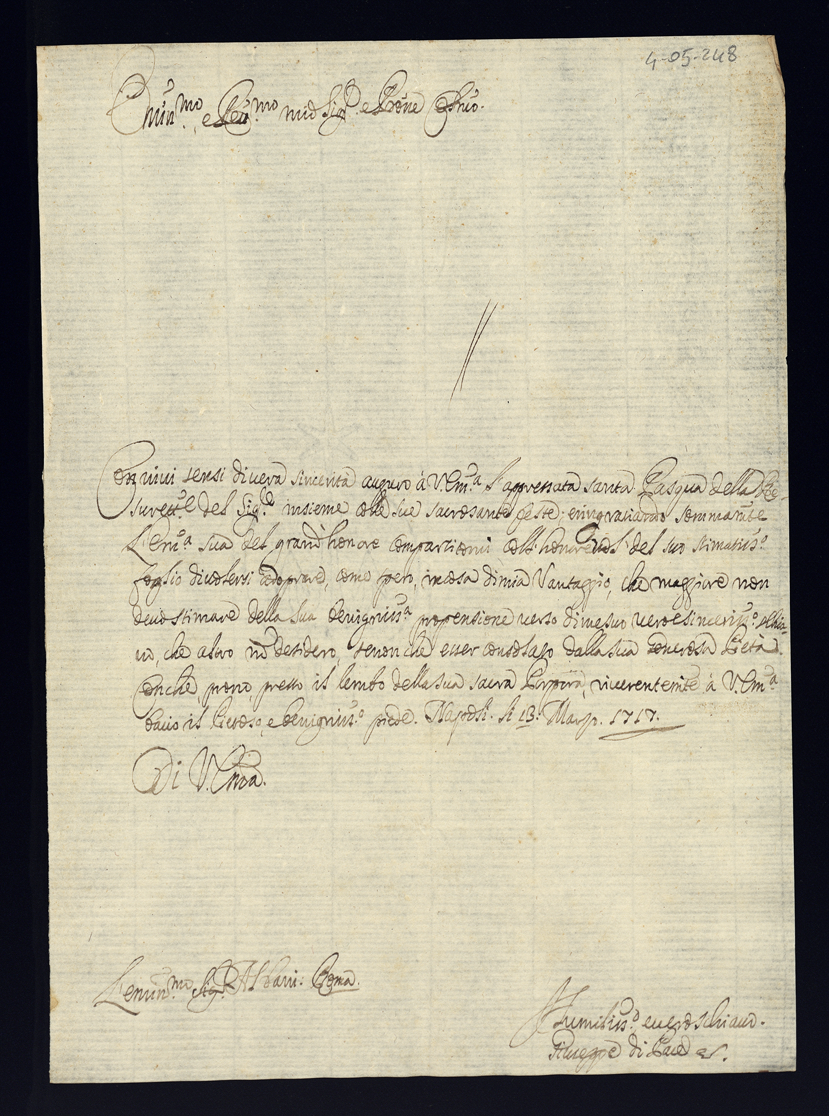 4-05-248
Emin.mo e Reu.mo mio Sig.r e Prone
Con vivi sensi di vera sincerità auguro à V. Em.a l'appressata santa Pasqua della Re-
surett.e del Sig.re insieme colle sue sacrosante feste; e ringratiando sommam.te
L'Em.a sua del grand'honore del suo stimatiss.o
foglio come però, in cosa di mia Vantaggio, che maggiore non
devo stimare della sua benigniss.a propensione verso di me suo vero e sinceriss.o
che altro nõ desidero, senon che esser dalla sua generosa Pietà.
Onche, prono, presso il lembo della sua sacra Porpora, riverentem.te à V. Em.a
bacio il e benigniss.o piede. Napoli li 13. Marzo. 1717.
Di V. Em̃a.
L'emin.mo Sig.r Albani: Roma.
Humiliss.o e vero schiavo.
Giuseppe di